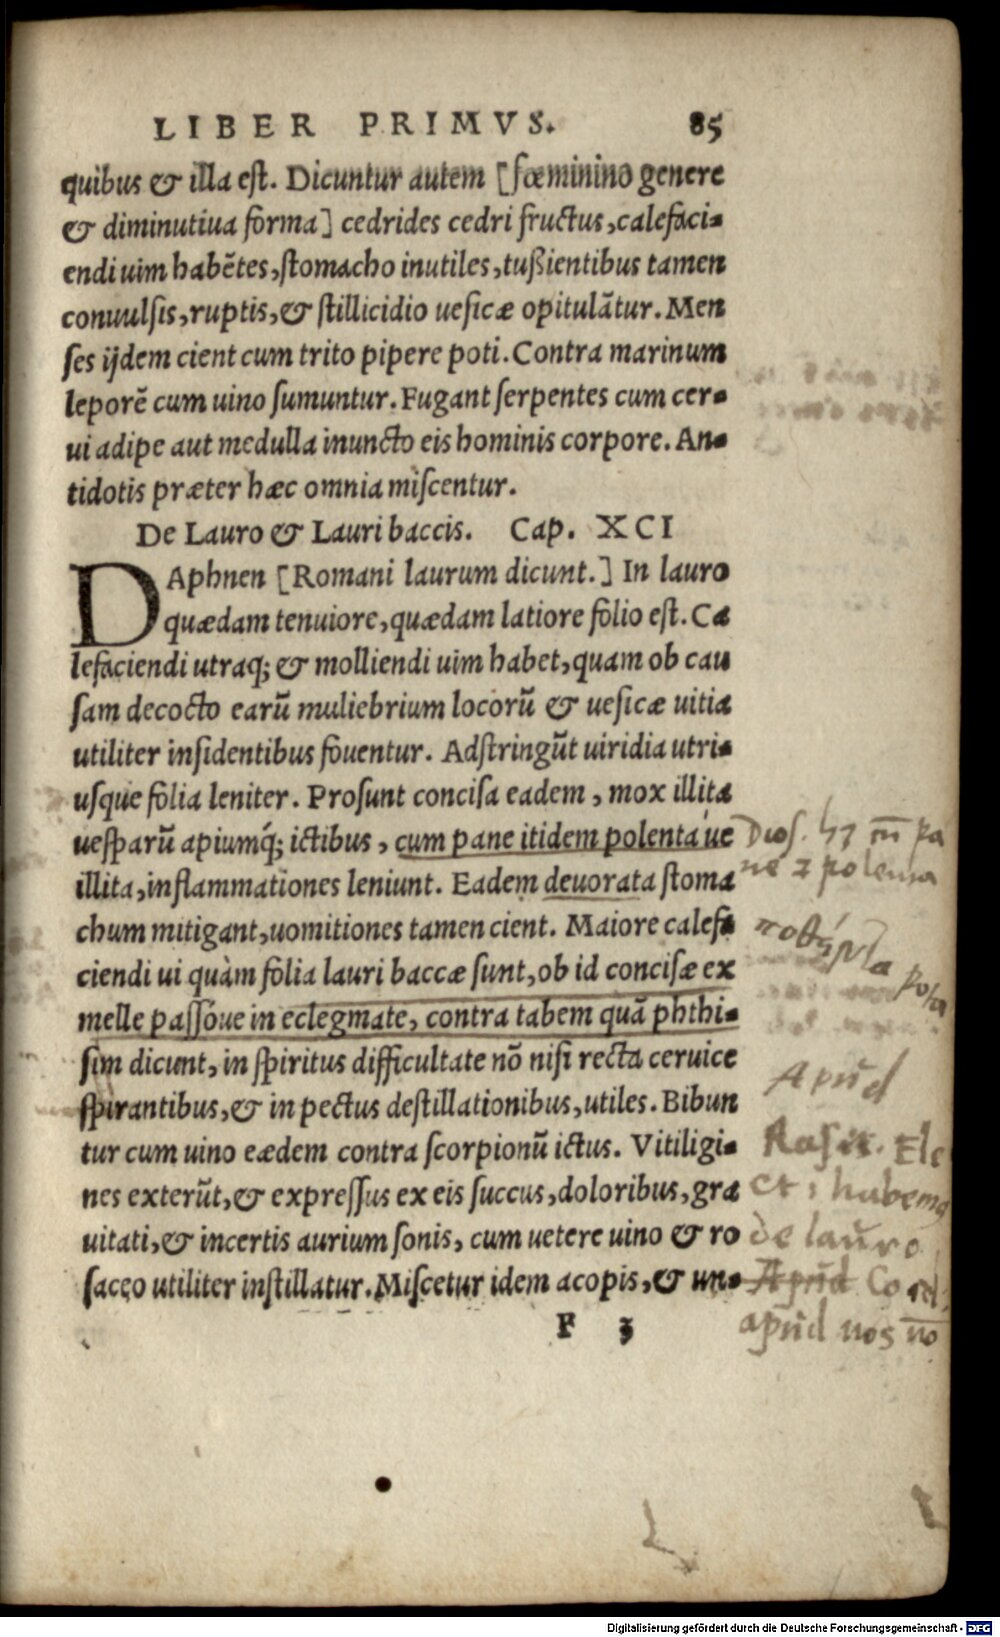 LIBER PRIMVS. 85
quibus & illa est. Dicuntur autem [fœminino genere
& diminutiua forma] cedrides cedri fructus, calefaci-
endi uim habẽtes, stomacho inutiles, tußientibus tamen
conuulsis, ruptis, & stillicidio uesicæ opitulãtur. Men
ses ijdem cient cum trito pipere poti. Contra marinum
leporẽ cum uino sumuntur. Fugant serpentes cum cer-
ui adipe aut medulla inuncto eis hominis corpore. An-
tidotis præter hæc omnia miscentur.
De Lauro & Lauri baccis. Cap. XCI
DAphnen [Romani laurum dicunt.] In lauro
quædam tenuiore, quædam latiore folio est. Ca
lefaciendi utraq; & molliendi uim habet, quam ob cau
sam decocto earũ muliebrium locorũ & uesicæ uitia
utiliter insidentibus fouentur. Adstringũt uiridia utri-
usque folia leniter. Prosunt concisa eadem, mox illita
uesparũ apiumq́; ictibus, cum pane itidem polenta ue
illita, inflammationes leniunt. Eadem deuorata stoma
chum mitigant, uomitiones tamen cient. Maiore calefa
ciendi ui quàm folia lauri baccæ sunt, ob id concisæ ex
melle passóue in eclegmate, contra tabem quã phthi-
sim dicunt, in spiritus difficultate nõ nisi recta ceruice
spirantibus, & in pectus destillationibus, utiles. Bibun
tur cum uino eædem contra scorpionũ ictus. Vitiligi-
nes exterũt, & expressus ex eis succus, doloribus, gra
uitati, & incertis aurium sonis, cum uetere uino & ro
saceo utiliter instillatur. Miscetur idem acopis, & un-
F 3
Dios. cũ pa
ne polenta
pota
Apũd
Rasis. Ele
ct habem
de lauro
Apũd Cord
apũd nos nõ
Digitalisierung gefördert durch die Deutsche Forschungsgemeinschaft - DFG